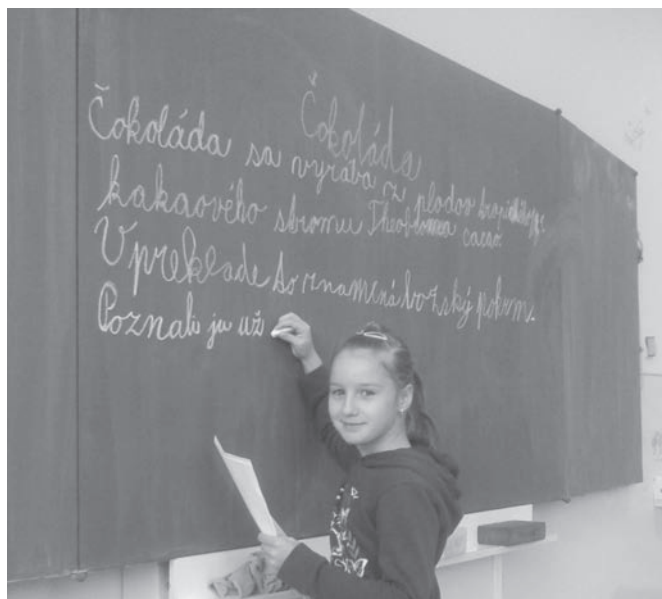 Čokoláda
Čokoláda sa vyrába z plodov
kakaového stromu Theobroma cacao.
V preklade to znamená božský pokrm.
Poznali ju už